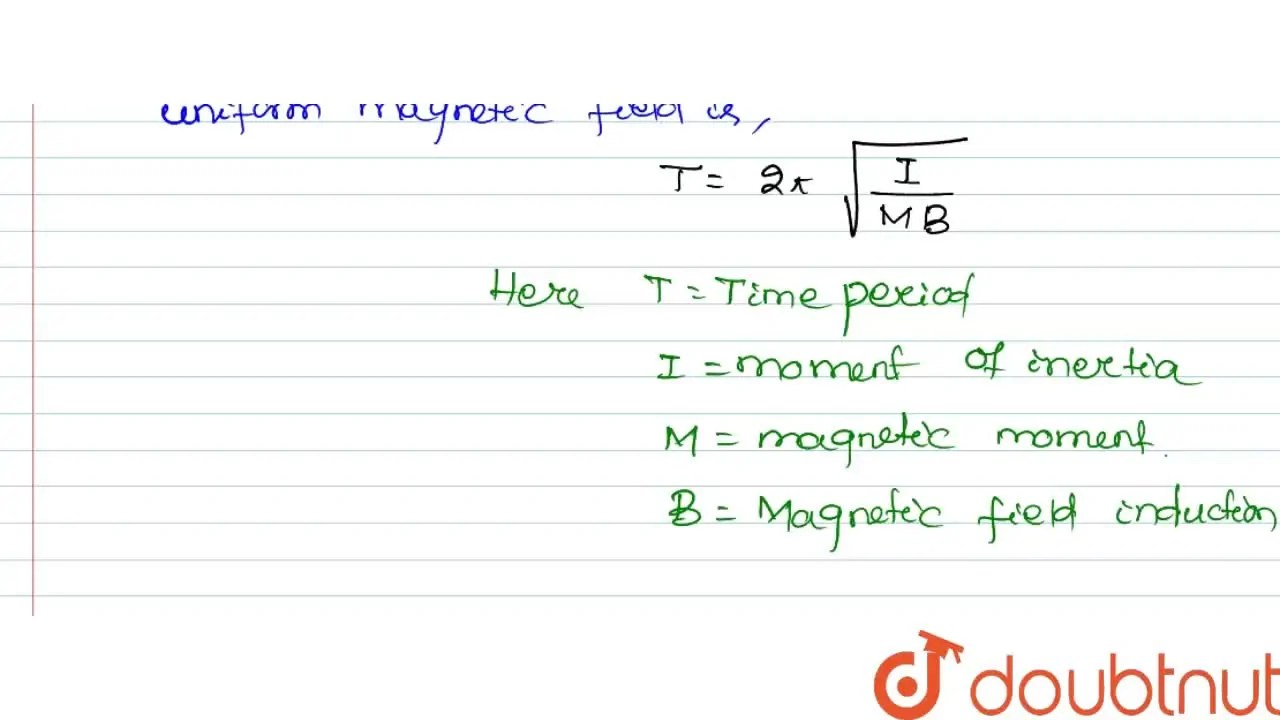 uniform magnetic field is,
T = 2π √(I / MB)
Here T = Time period
I = moment of inertia
M = magnetic moment.
B = Magnetic field induction
doubtnut